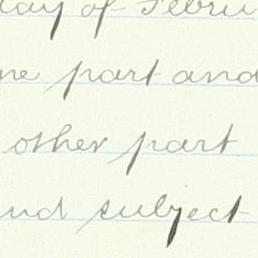 day of Febru
ne part and
other part
and subject